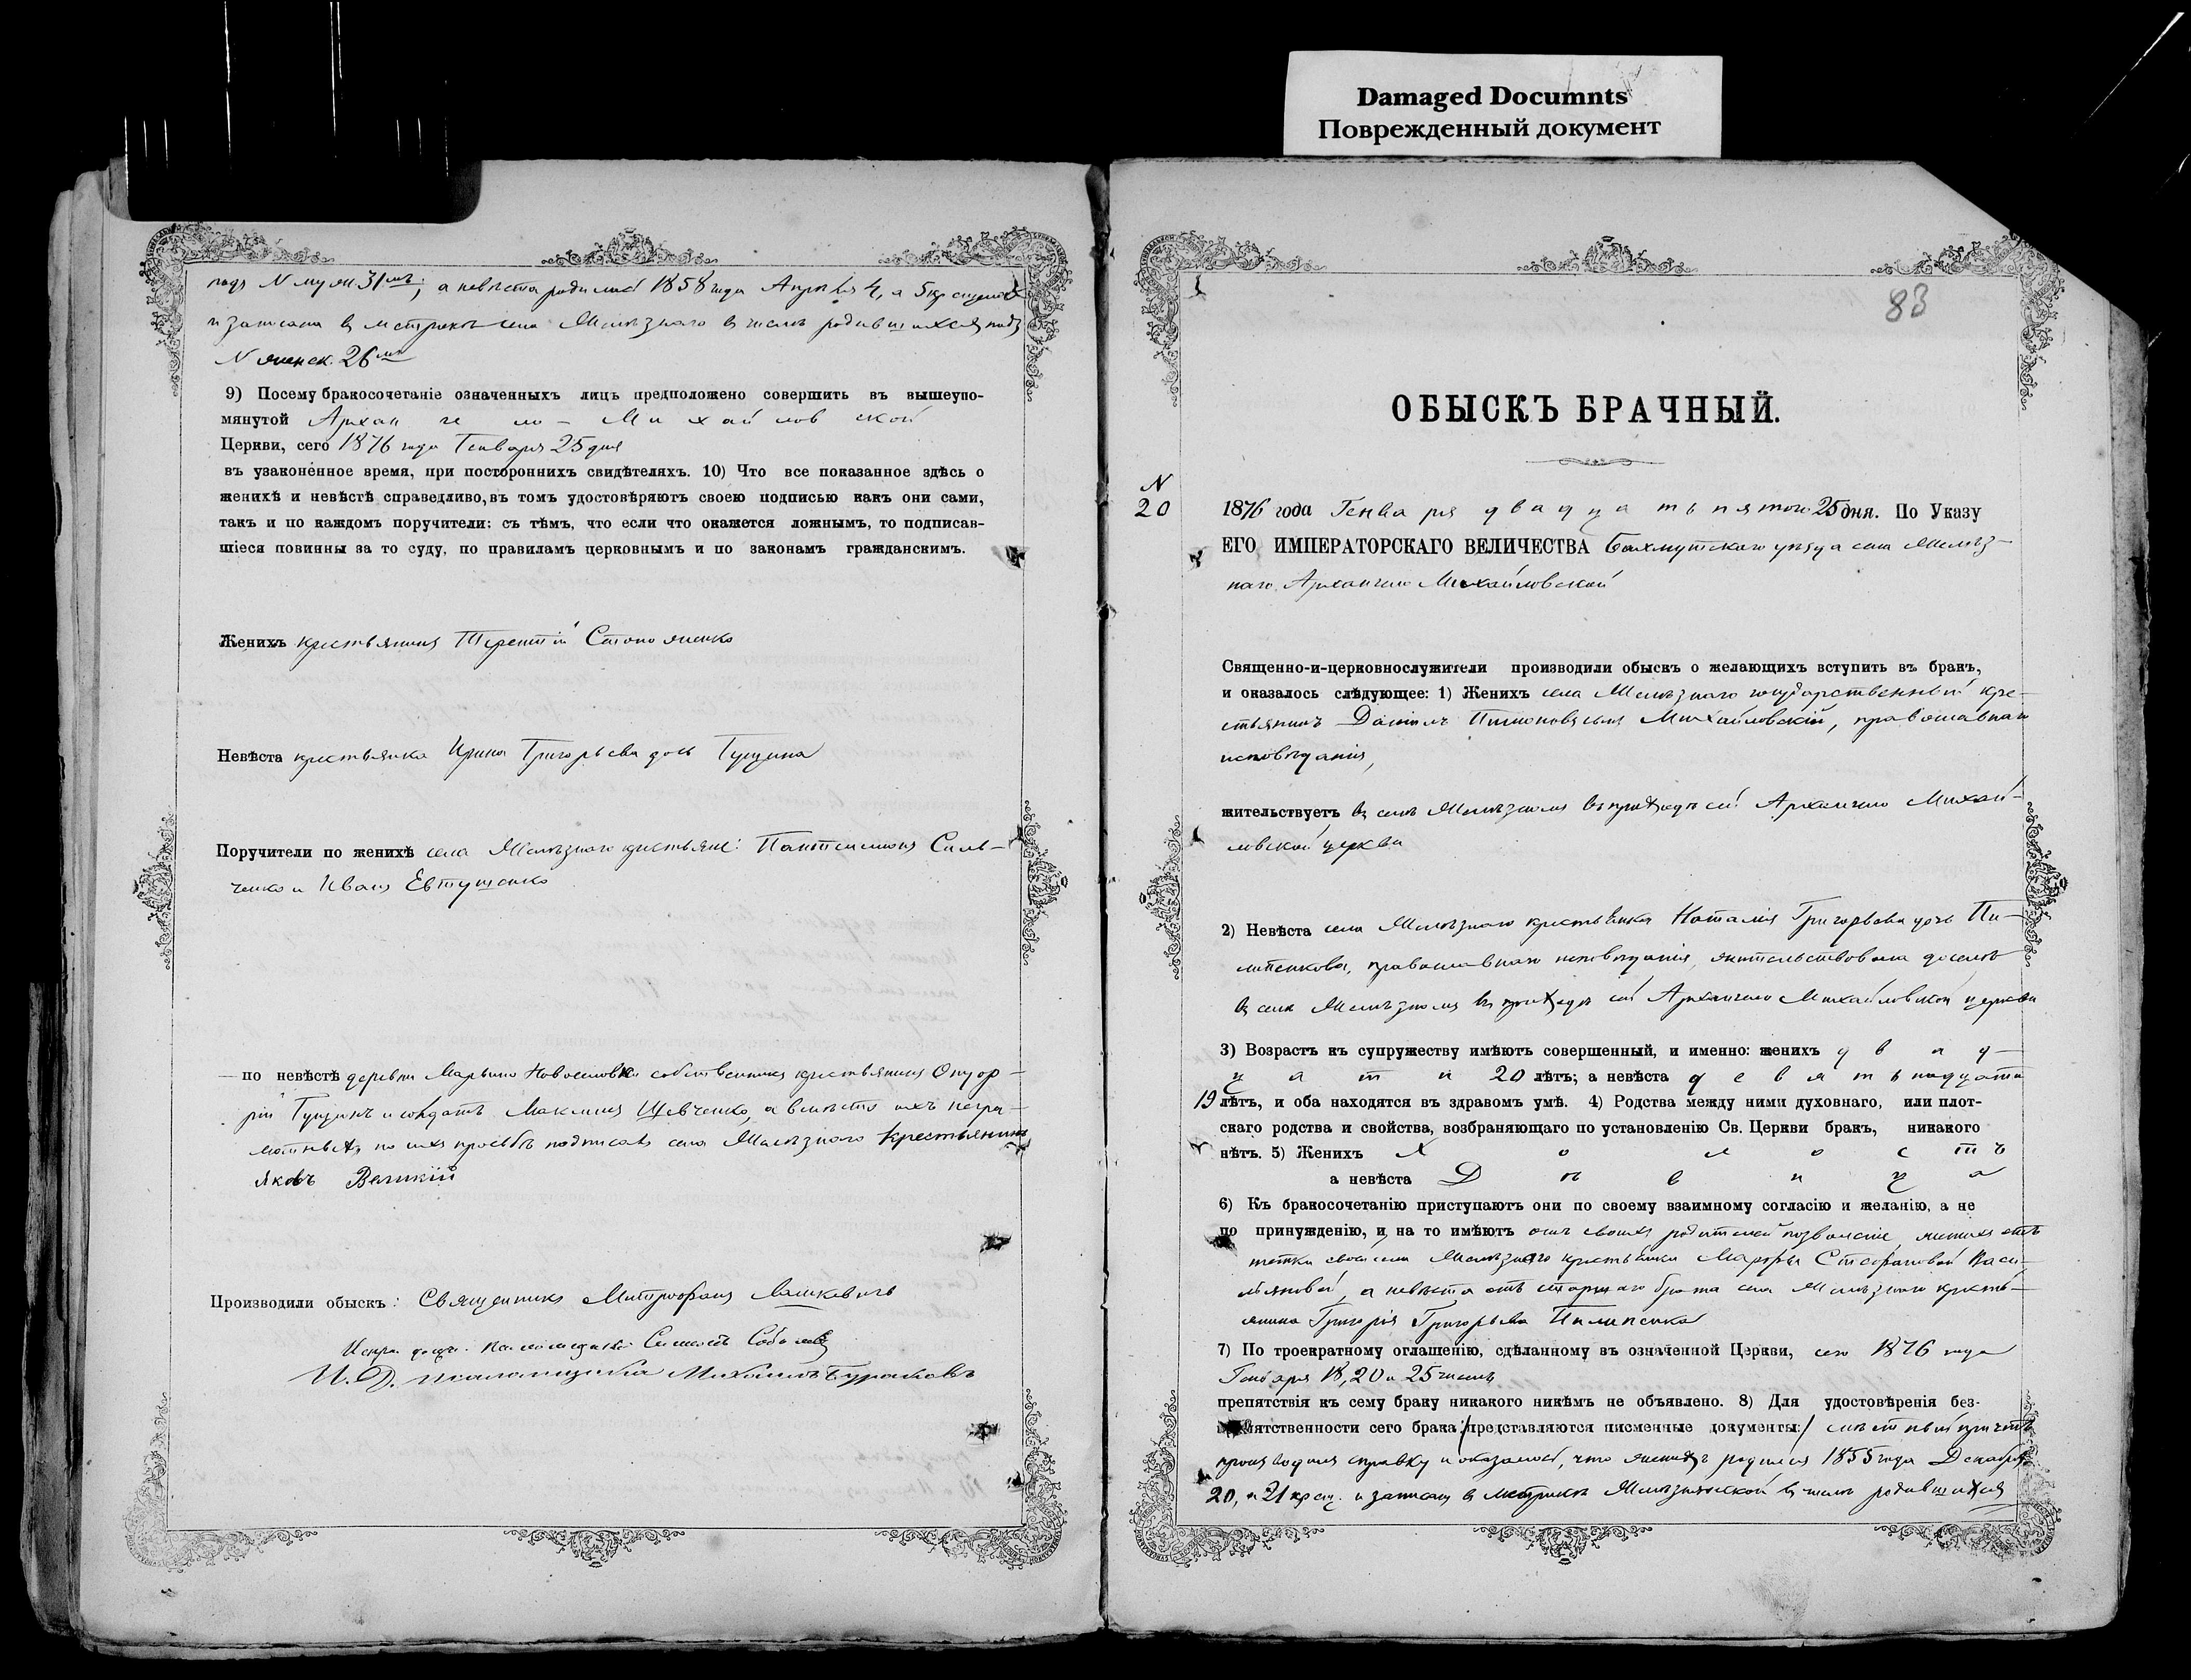 Damaged Documnts
Поврежденный документ
подъ N муж 31мъ, а невѣста родилась 1858 года Апрѣля 4, а 5 крещена
и записана въ метрикѣ села Желѣзнаго въ числѣ родившихся подъ
N женск. 26мъ
9) Посему бракосочетаніе означенныхъ лицъ предположено совершить въ вышеупо-
мянутой Архангело-Михайловской
Церкви, сего 1876 года Генваря 25 дня
въ узаконенное время, при постороннихъ свидѣтеляхъ. 10) Что все показанное здѣсь о
женихѣ и невѣстѣ справедливо, въ томъ удостовѣряютъ своею подписью какъ они сами,
такъ и по каждомъ поручители: съ тѣмъ, что если что окажется ложнымъ, то подписав-
шіеся повинны за то суду, по правиламъ церковнымъ и по законамъ гражданскимъ.
Женихъ крестьянинъ Терентій
Невѣста крестьянка Ирина Григорьева дочь Гущина
Поручители по женихѣ села Желѣзнаго крестьяне: Пантелимонъ Силь-
ченко и Иванъ Евтушенко
по невѣстѣ деревни Марьино собственникъ крестьянинъ Онуф-
рій Гущинъ и солдатъ Максимъ Шевченко, а вмѣсто ихъ негра-
мотныхъ по ихъ просьбѣ подписалъ села Желѣзнаго крестьянинъ
Яковъ Великій
Производили обыскъ: Священникъ Митрофанъ Лашкевичъ
Испр. должн. псаломщика
И. Д. псаломщика Михаилъ Бураковъ
83
ОБЫСКЪ БРАЧНЫЙ.
N
20
1876 года Генваря двадцать пятого 25 дня. По Указу
ЕГО ИМПЕРАТОРСКАГО ВЕЛИЧЕСТВА Бахмутскаго уѣзда села Желѣз-
наго Архангело Михайловской
Священно-и-церковнослужители производили обыскъ о желающихъ вступить въ бракъ,
и оказалось слѣдующее: 1) Женихъ села Желѣзнаго государственный кре-
стьянинъ Даніилъ Михайловскій, православнаго
исповѣданія,
жительствуетъ въ селѣ Желѣзномъ въ приходѣ сей Архангело Михай-
ловской церкви
2) Невѣста села Желѣзнаго крестьянка Наталія Григорьева дочь Пи-
липенкова, православнаго исповѣданія, жительствовала доселѣ
въ селѣ Желѣзномъ въ приходѣ сей Архангело Михайловской церкви
3) Возрастъ къ супружеству имѣютъ совершенный, и именно: женихъ двад-
цати 20 лѣтъ; а невѣста девятьнадцати
19 лѣтъ, и оба находятся въ здравомъ умѣ. 4) Родства между ними духовнаго, или плот-
скаго родства и свойства, возбраняющаго по установленію Св. Церкви бракъ, никакого
нѣтъ. 5) Женихъ Холостъ
а невѣста Дѣвица
6) Къ бракосочетанію приступаютъ они по своему взаимному согласію и желанію, а не
по принужденію, и на то имѣютъ отъ своихъ родителей позволеніе, женихъ отъ
тетки своей села Желѣзнаго крестьянки Марфы Стефановой Васи-
льяновой, а невѣста отъ старшаго брата села Желѣзнаго кресть-
янина Григорія Григорьева Пилипенка
7) По троекратному оглашенію, сдѣланному въ означенной Церкви, сего 1876 года
Генваря 18, 20 и 25 чиселъ
препятствія къ сему браку никакого никѣмъ не объявлено. 8) Для удостовѣренія без-
препятственности сего брака /представляются писменные документы:/ мѣстный причтъ
производилъ справку и оказалось, что женихъ родился 1855 года Декабря
20, а 21 крещ. и записанъ въ метрикѣ Желѣзнянской въ числѣ родившихся